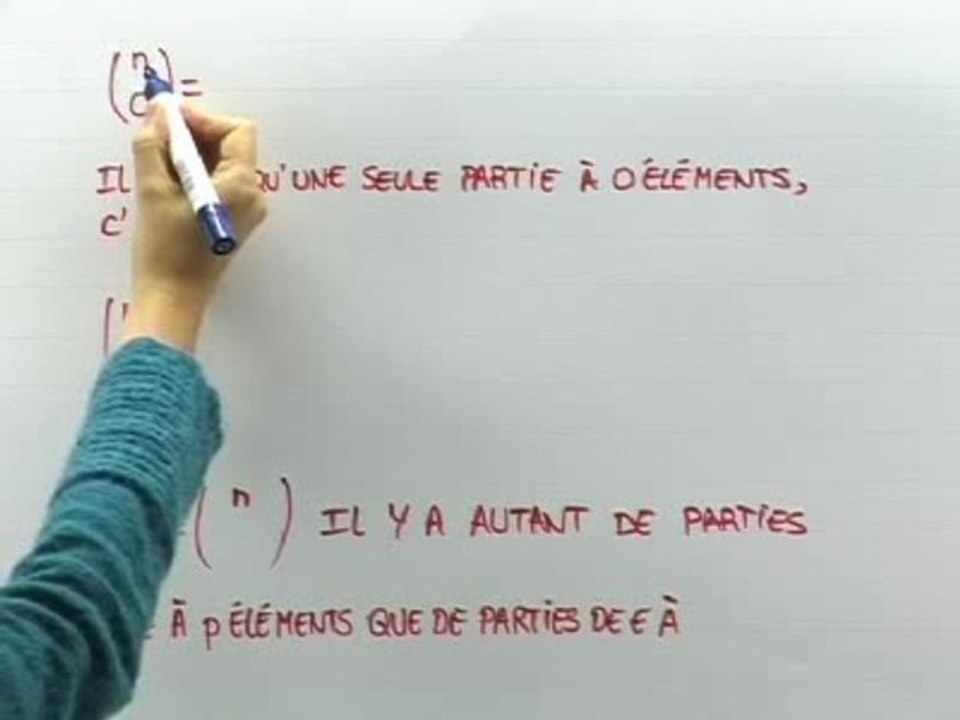 (n 0) =
IL QU'UNE SEULE PARTIE À 0 ÉLÉMENTS,
C'
(
( n ) IL Y A AUTANT DE PARTIES
À p ÉLÉMENTS QUE DE PARTIES DE E À